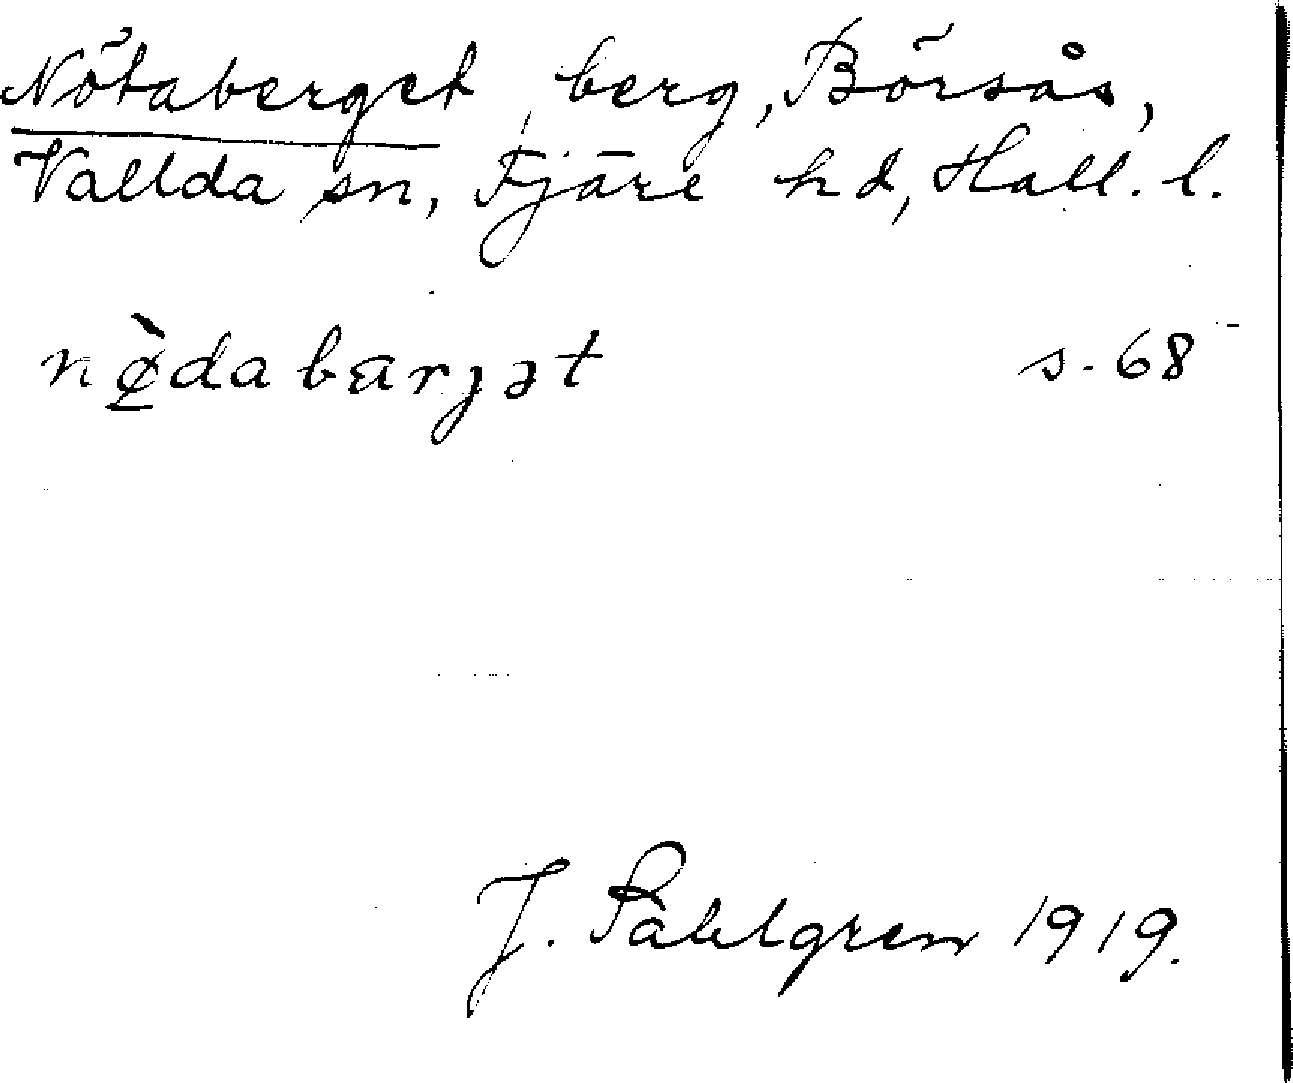 Nötaberget, berg, Börsås,
Vallda sn, Fjäre hd, Hall. l.
nø̀dabærjət s. 68
J. Påhlgren 1919.